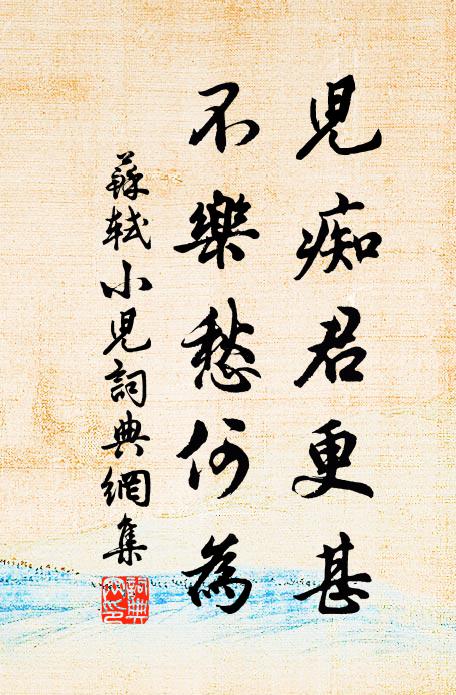 児痴君更甚
不樂愁何為
蘇軾小児詞典網集
詞典